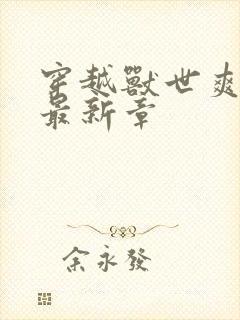 穿越獸世爽
最新章
余永發